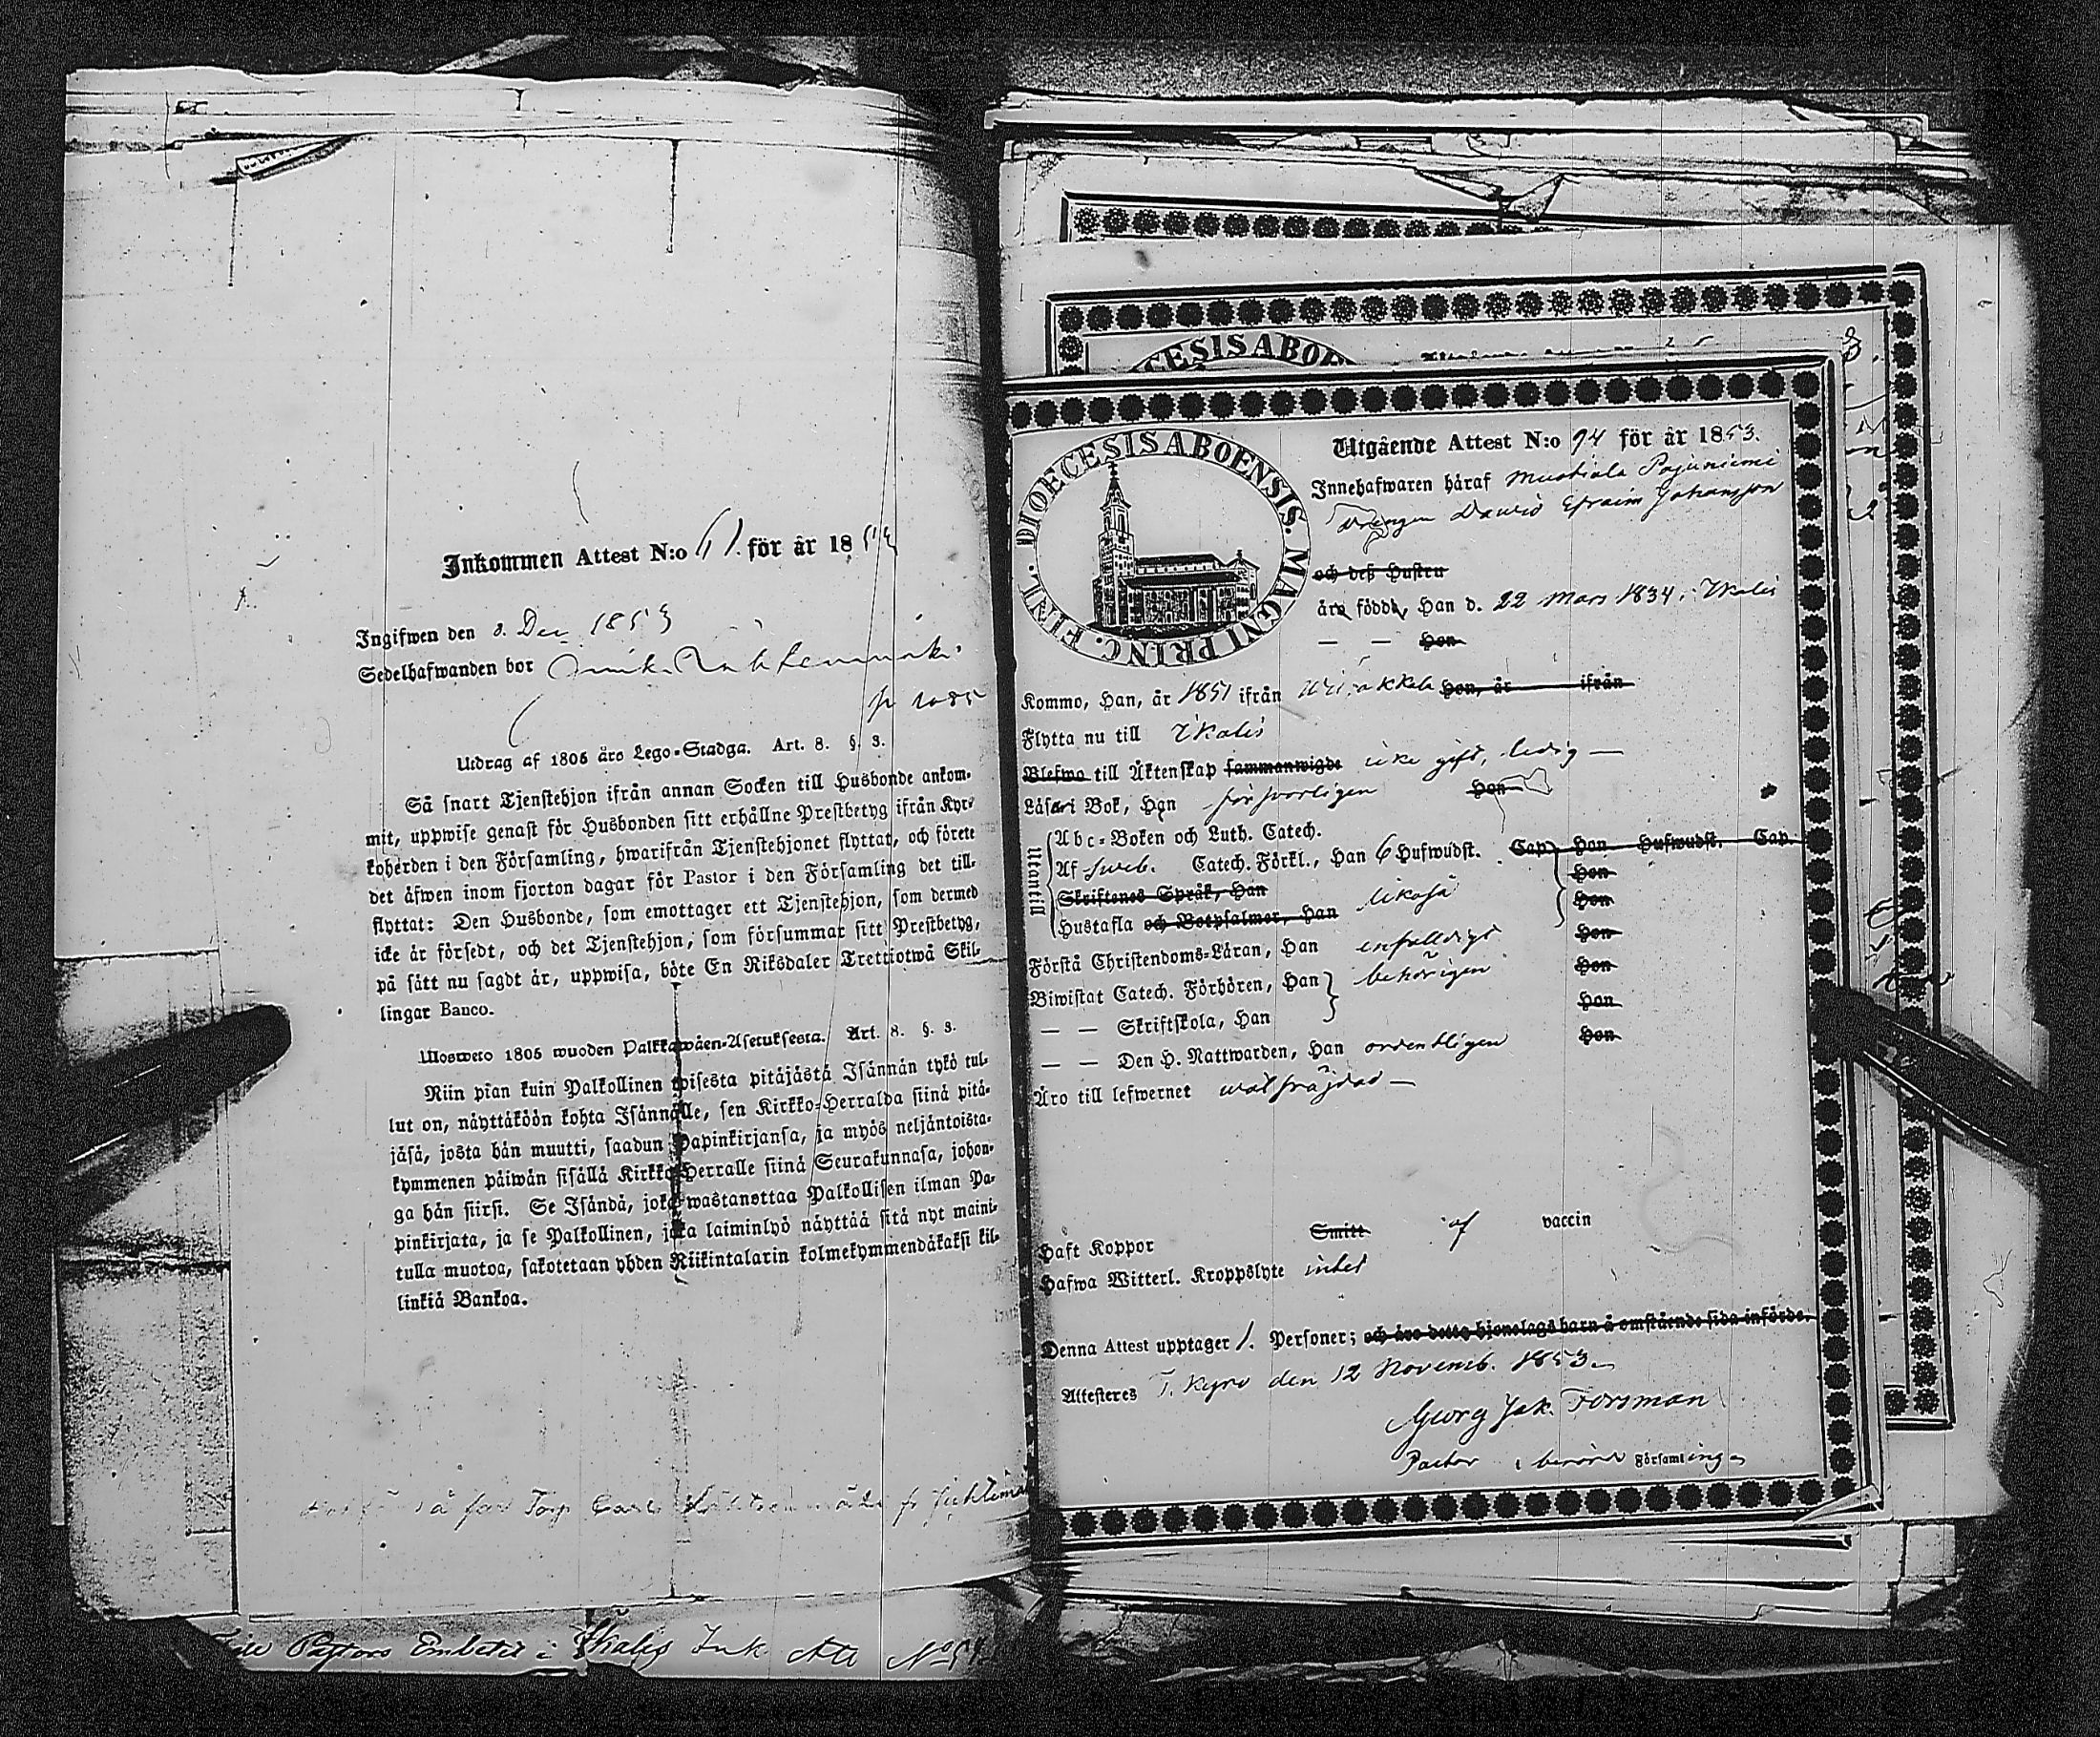 Inkommen Attest N:o 61. för år 1853
Ingifwen den 8. Dec 1853
Sedelhafwanden bor
p 1085
Utdrag af 1805 års Lego-Stadga. Art. 8. §. 3.
Så snart Tjenstehjon ifrån annan Socken till Husbonde ankom-
mit, uppwise genast för Husbonden sitt erhållne Prestbetyg ifrån Kyr-
koherden i den Församling, hwarifrån Tjenstehjonet flyttat, och förete
det äfwen inom fjorton dagar för Pastor i den Församling det till-
flyttat: Den Husbonde, som emottager ett Tjenstehjon, som dermed
icke är försedt, och det Tjenstehjon, som försummar sitt Prestbetyg,
på sätt nu sagdt är, uppwisa, böte En Riksdaler Trettiotwå Skil-
lingar Banco.
Ulosweto 1805 wuoden Palkkawäen-Asetuksesta. Art. 8. §. 3.
Niin pian kuin Palkollinen toisesta pitäjästä Isännän tykö tul-
lut on, näyttäköön kohta Isännälle, sen Kirkko-Herralda siinä pitä-
jäsä, josta hän muutti, saadun Papinkirjansa, ja myös neljäntoista-
kymmenen päiwän sisällä Kirkko-Herralle siinä Seurakunnasa, johon-
ga hän siirsi. Se Isändä, joka wastanottaa Palkollisen ilman Pa-
pinkirjata, ja se Palkollinen, joka laiminlyö näyttää sitä nyt maini-
tulla muotoa, sakotetaan yhden Riikintalarin kolmekymmendäkaksi kil-
linkiä Bankoa.
Pastors Embetet i Ikalis Ink. Att No
DIOECESIS ABOENSIS. MAGNI PRINC. FINL.
Utgående Attest N:o 94 för år 1853.
Innehafwaren häraf Mustiala Pajuniemi
drängen Dawid Efraim Johansson
och deß Hustru
äro födde, Han d. 22 Mars 1834. i Ikalis
— — Hon
Kommo, Han, år 1851 ifrån hon, år ifrån
Flytta nu till Ikalis
Blefwo till Äktenskap sammanwigde icke gift, ledig —
Läsa i Bok, Han försvarligen Hon
Utantill
Abc-Boken och Luth. Catech.
Af Sweb. Catech. Förkl., Han 6 Hufwudst. Cap. Hon Hufwudst. Cap.
Skriftenes Språk, Han Hon
Hustafla och Botpsalmer, Han likaså Hon
Förstå Christendoms-Läran, Han enfalldigt Hon
Biwistat Catech. Förhören, Han behörigen Hon
— — Skriftskola, Han Hon
— — Den H. Nattwarden, Han ordentligen Hon
Äro till lefwernet wälfräjdad —
Haft Koppor Smitt af vaccin
Hafwa Witterl. Kroppslyte intet
Denna Attest upptager 1. Personer; och äro detta hjonelags barn å omstående sida införde.
Attesteras T. Kyro den 12 Novemb. 1853.
Georg Jak. Forsman
Pastor i berörde Församlingen